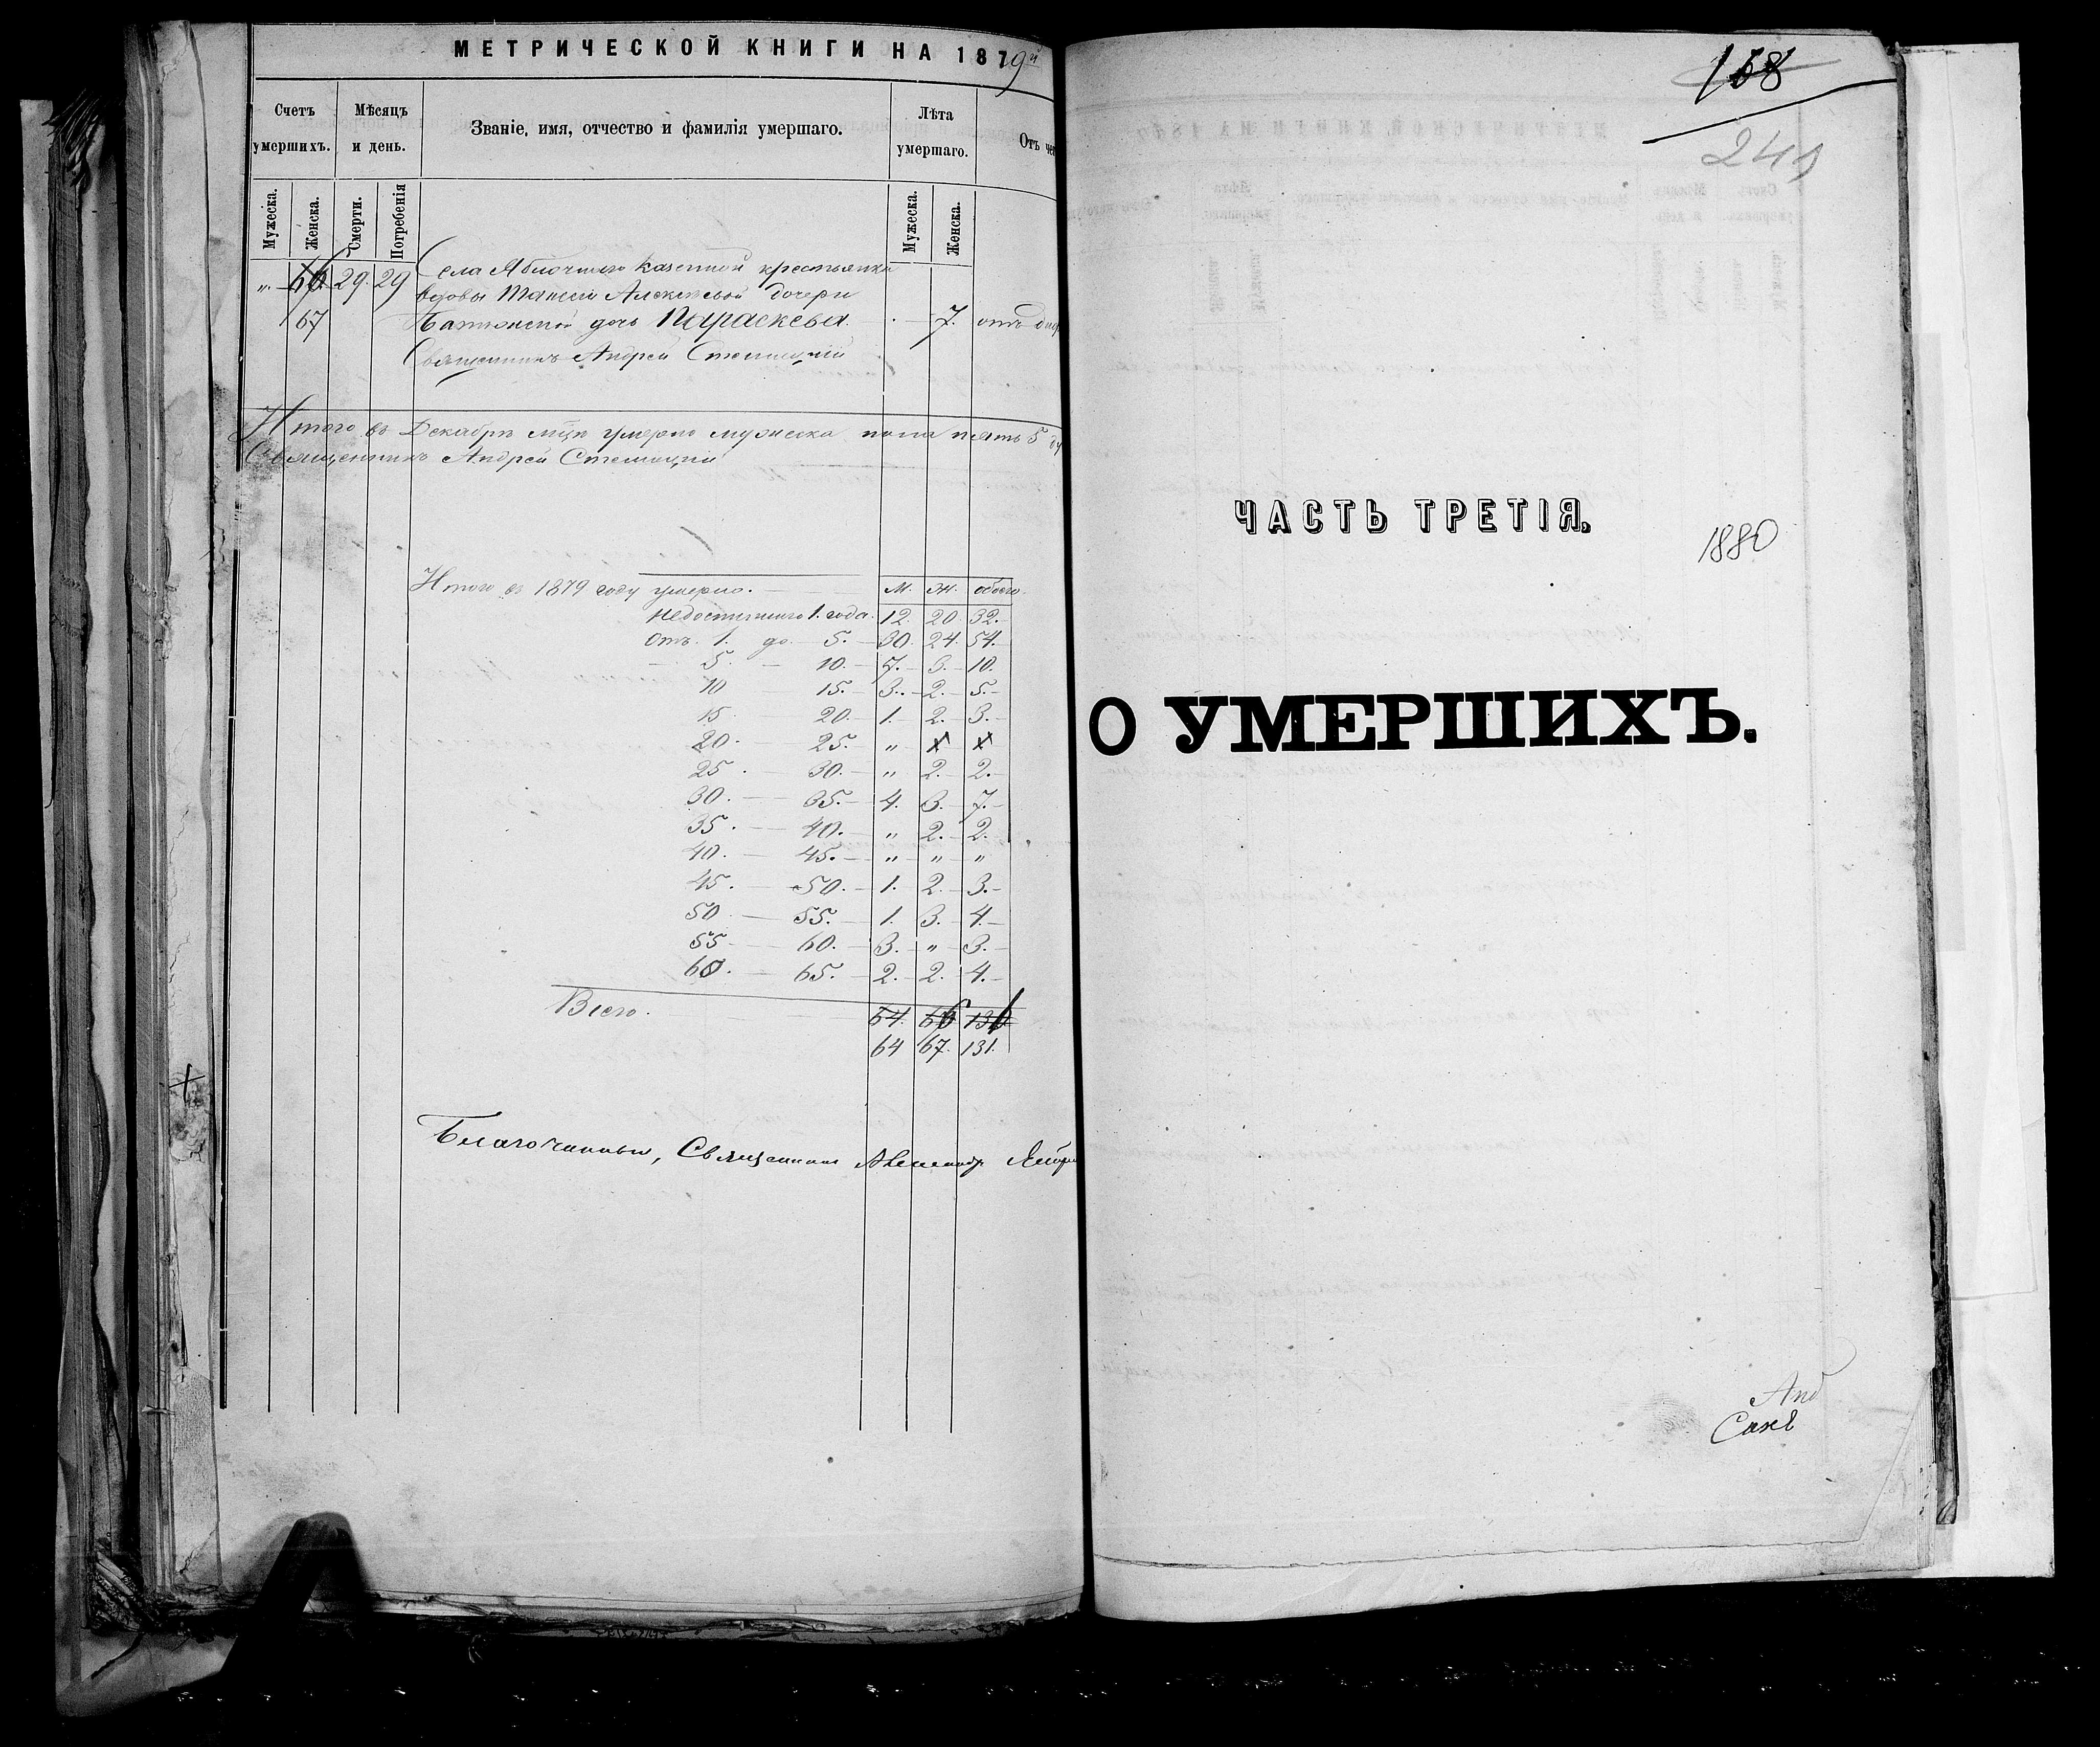 МЕТРИЧЕСКОЙ КНИГИ НА 1879й
Счетъ умершихъ.
Мѣсяцъ и день.
Званіе, имя, отчество и фамилія умершаго.
Лѣта умершаго.
Отъ че
Мужеска.
Женска.
Смерти.
Погребенія
Мужеска.
Женска.
„ 66 29. 29 Села Яблочнаго казенной крестьянки
вдовы Алексѣевой дочери
67 дочь Параскева. 7. отъ
Священникъ Андрей
Итого въ Декабрѣ мцѣ умерло мужеска пола пять 5
Священникъ Андрей
Итого въ 1879 году умерло. М. Ж. обоего
Недостигшаго 1. года. 12. 20 32.
Отъ 1. до 5. 30. 24. 54.
5. 10. 7. 3. 10.
10 15. 3. 2. 5.
15 20. 1. 2. 3.
20. 25. „
25. 30. „ 2. 2.
30. 35. 4. 3. 7.
35. 40. „ 2. 2.
40. 45. „ „ „
45. 50. 1. 2. 3.
50 55. 1. 3. 4.
55 60. 3. „ 3.
60. 65. 2. 2. 4.
Всего. 64. 66 130
64 67. 131.
Благочинный, Священникъ
168
241
ЧАСТЬ ТРЕТІЯ.
1880
О УМЕРШИХЪ.